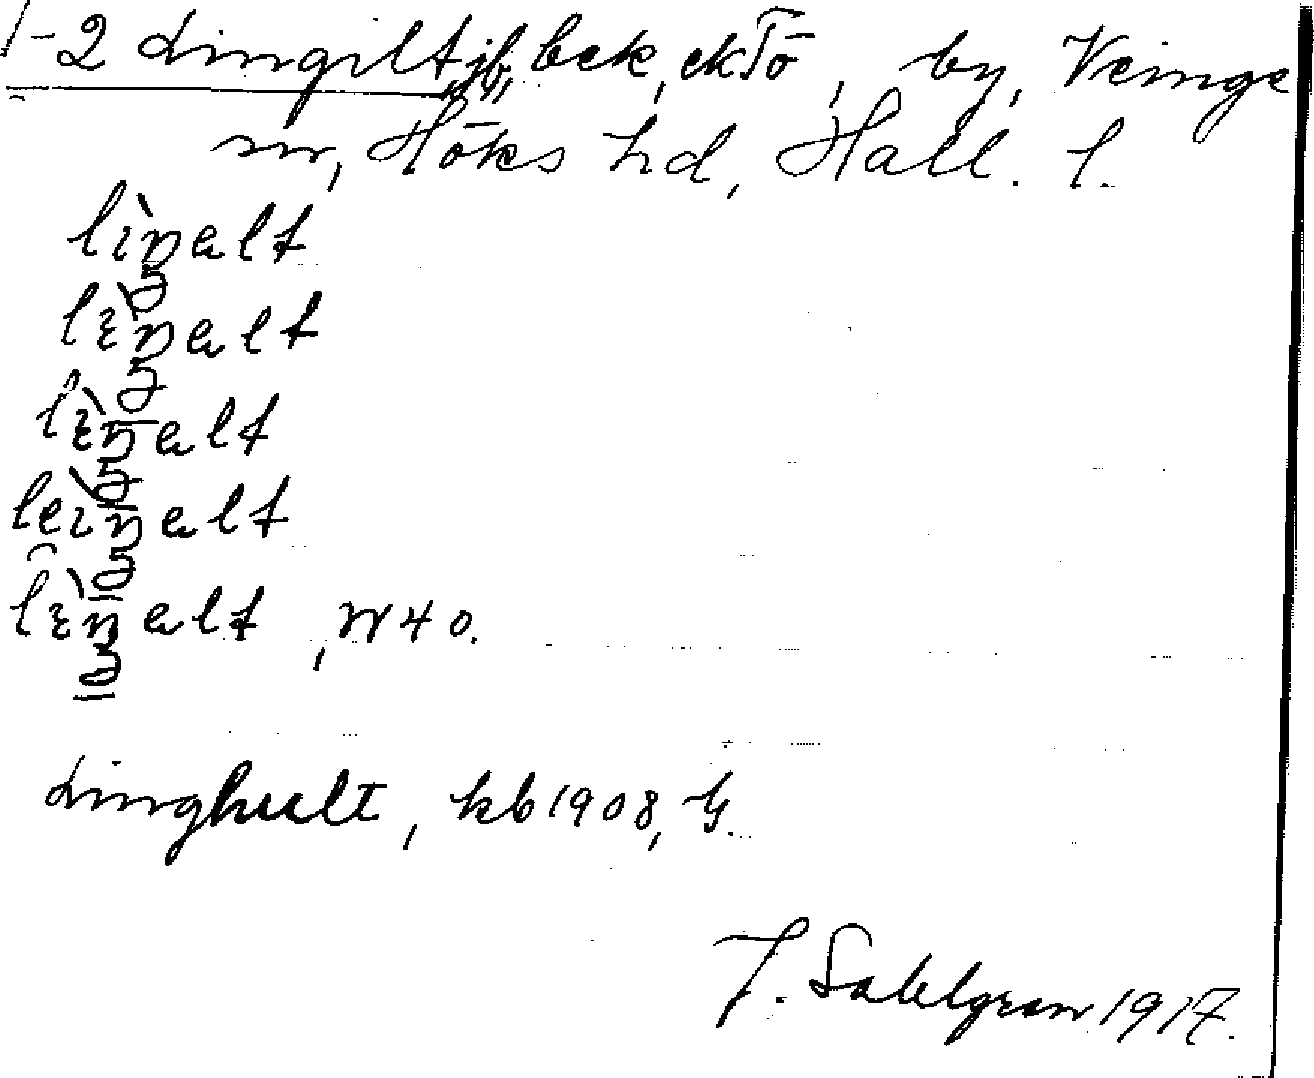 1-2 Lingilt, jb, bek, ekTō, by, Veinge
sn, Höks hd, Hall. l.
liŋalt
lɛŋalt
lɛŋalt
leiŋalt
lɛŋalt, N 40.
Linghult, kb 1908, G.
J. Sahlgren 1917.